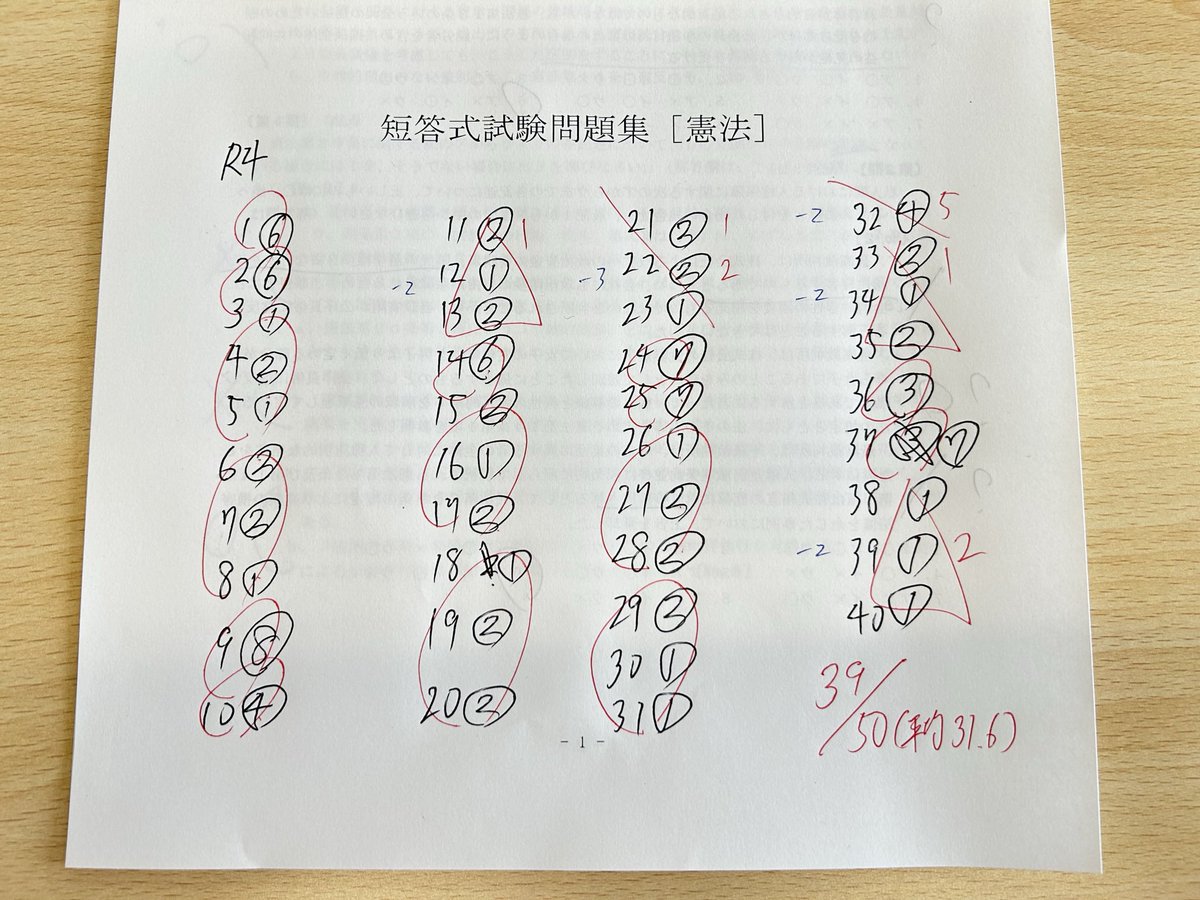 短答式試験問題集［憲法］
R4
1 ⑥
2 ⑥
3 ①
4 ②
5 ①
6 ②
7 ②
8 ①
9 ⑧
10 ④
11 ② 1
-2 12 ①
13 ②
14 ⑥
15 ②
16 ①
17 ②
18 ①
19 ②
20 ②
21 ② 1
-3 22 ② 2
23 ①
24 ⑦
25 ⑦
26 ①
27 ②
28 ②
29 ②
30 ①
31 ①
-2 32 ④ 5
33 ② 1
-2 34 ①
35 ②
36 ③
37 ⑦
38 ①
-2 39 ① 2
40 ①
39/50(平均31.6)
- 1 -